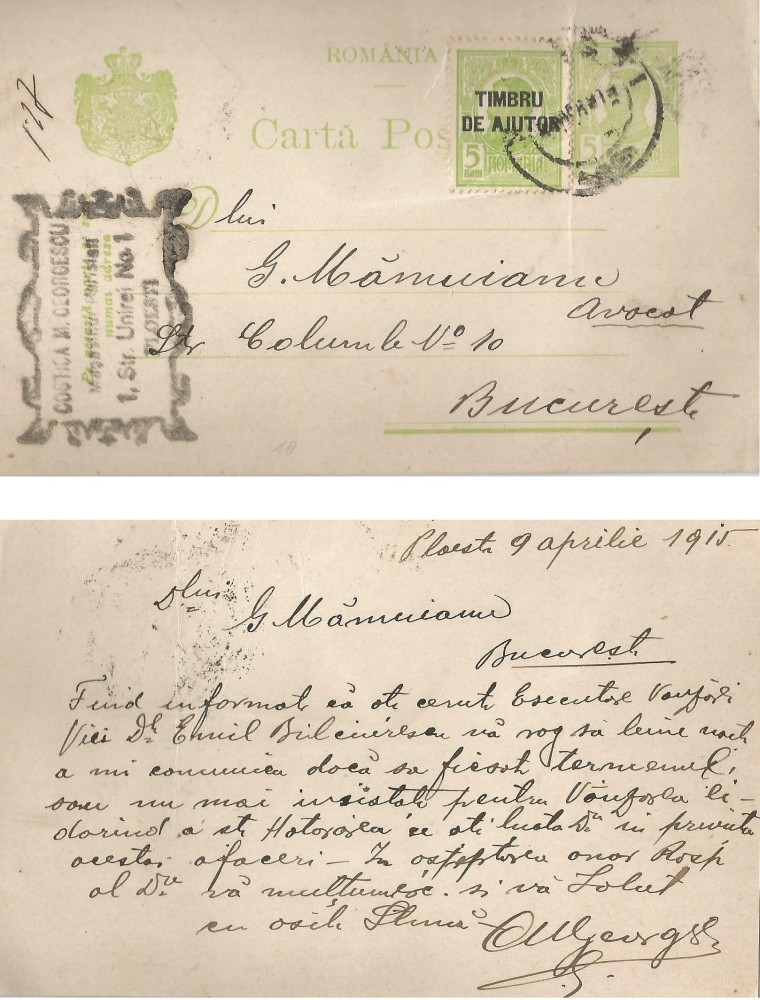 ROMÂNIA
Cartă Pos
TIMBRU
DE AJUTOR
5 BANI ROMANIA
5
127
COSTICA M. GEORGESCU
1, Str. Unirei No. 1
PLOESTI
Dlui
G. Mămuianu
Avocat
Str Columbe No 10
București
10
Ploesti 9 aprilie 1915
Dlui
G Mămuianu
București
Fiind informat că ati cerut Esecutare Vanzări
Viei Dl Emil Bilciurescu vă rog să bine voiti
a mi comunica dacă sa ficsat termenul,
sau nu mai insistati pentru Vânzarea ei -
dorind a sti Hotorârea ce ati luata Dv in privinta
acestei afaceri - In asteptarea onor Rosp
al Dv vă multumesc si vă Salut
cu osib Stimă
CMGeorgescu